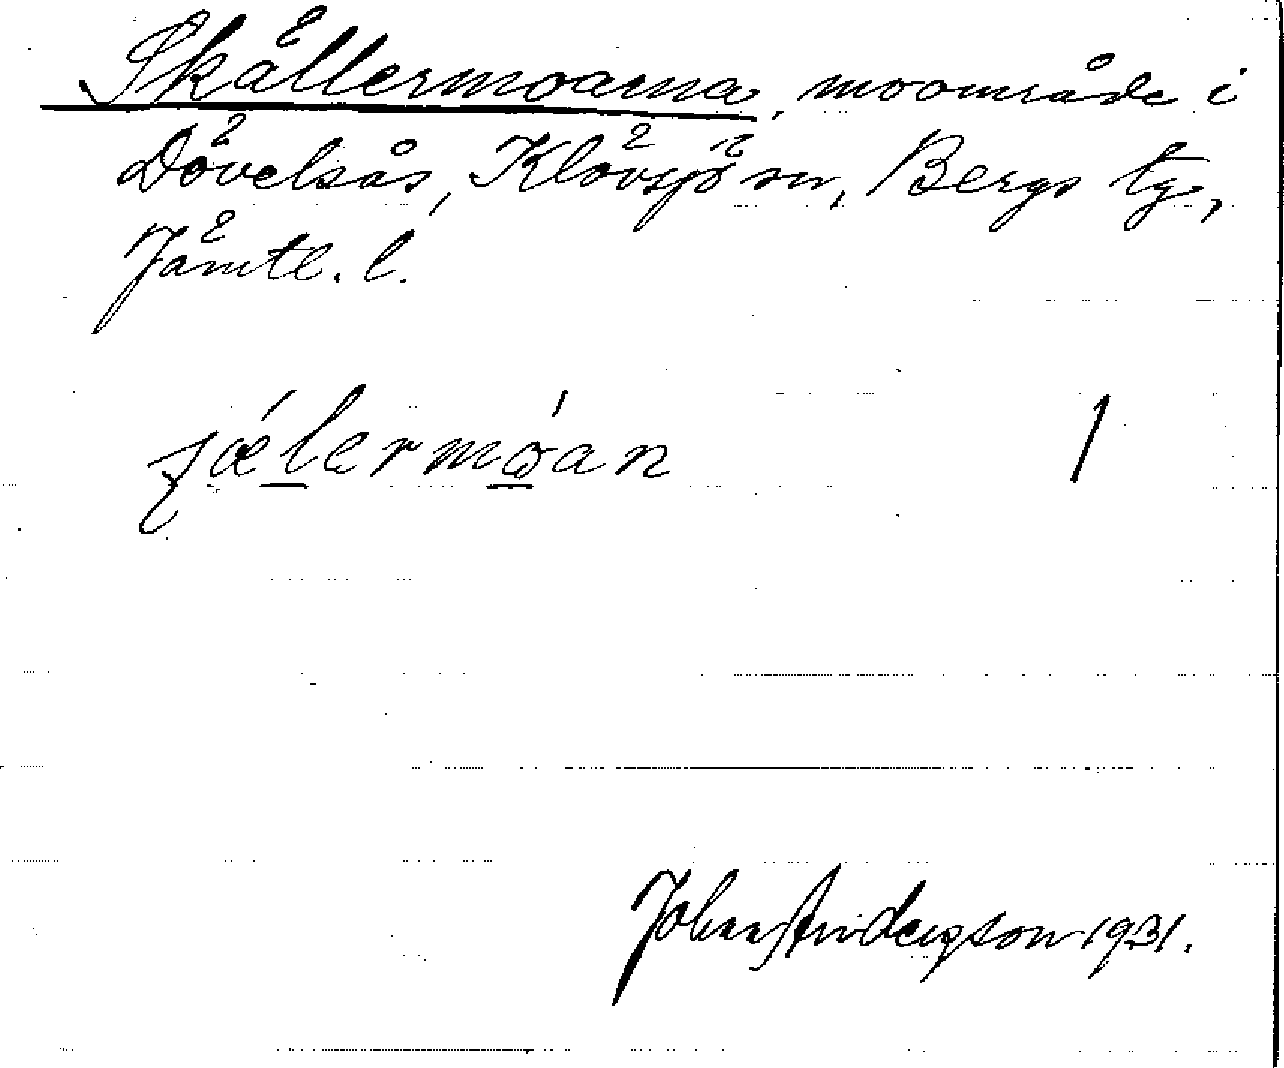 Skällermoarna, moområde i
Dövelsås, Klövsjö sn, Bergs tg,
Jämtl. l.
ʃǽlermóan 1
Johan Anderson 1931.